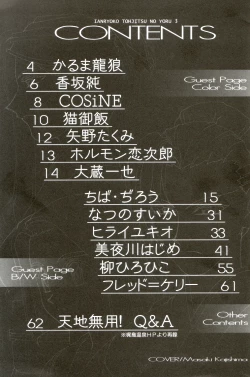 IANRYOKO TONJITSU NO YORU 3
CONTENTS
Guest Page
Color Side
4 かるま龍狼
6 香坂純
8 COSiNE
10 猫御飯
12 矢野たくみ
13 ホルモン恋次郎
14 大蔵一也
ちば・ぢろう 15
なつのすいか 31
ヒライユキオ 33
美夜川はじめ 41
柳ひろひこ 55
フレッド=ケリー 61
Guest Page
B/W Side
Other
Contents
62 天地無用! Q&A
※梶島温泉HPより再録
COVER/Masaki Kajishima